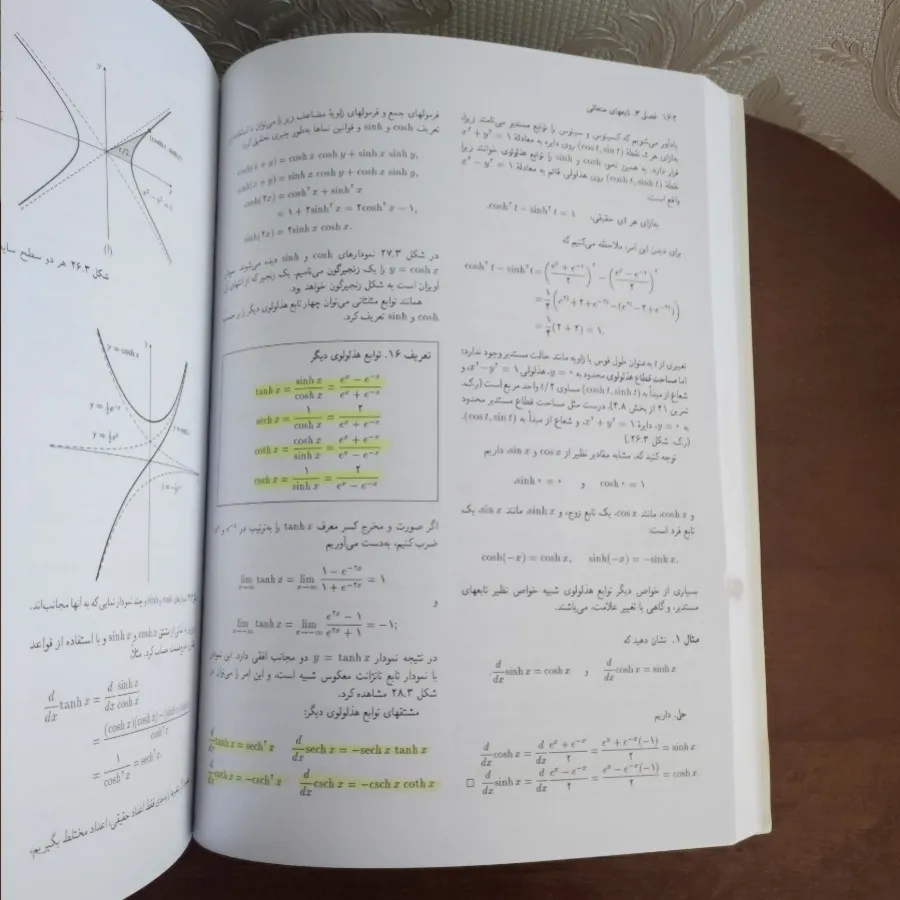 ۱۶۲ فصل ۳. تابعهای متعالی
یادآور می‌شویم که کسینوس و سینوس را توابع مستدیر می‌نامند زیرا،
به‌ازای هر t، نقطهٔ (cos t, sin t) روی دایره به معادلهٔ x² + y² = ۱
قرار دارد. به همین نحو، cosh و sinh را توابع هذلولوی خوانند زیرا
نقطهٔ (cosh t, sinh t) روی هذلولی قائم به معادلهٔ x² − y² = ۱
واقع است:
cosh² t − sinh² t = ۱ به‌ازای هر t‌ی حقیقی.
برای دیدن این امر، ملاحظه می‌کنیم که
cosh² t − sinh² t = ((e^t + e^−t)/۲)² − ((e^t − e^−t)/۲)²
= ۱/۴ (e^۲t + ۲ + e^−۲t − (e^۲t − ۲ + e^−۲t))
= ۱/۴ (۲ + ۲) = ۱.
تعبیری از t به‌عنوان طول قوس یا زاویه مانند حالت مستدیر وجود ندارد؛
اما مساحت قطاع هذلولوی محدود به y = ۰، هذلولی x² − y² = ۱، و
شعاع از مبدأ به (cosh t, sinh t) مساوی t/۲ واحد مربع است (ر.ک.
تمرین ۲۱ از بخش ۴.۸)، درست مثل مساحت قطاع مستدیر محدود
به y = ۰، دایرهٔ x² + y² = ۱، و شعاع از مبدأ به (cos t, sin t)
(ر.ک. شکل ۲۶.۳).
توجه کنید که، مشابه مقادیر نظیر از cos x و sin x، داریم
cosh ۰ = ۱ و sinh ۰ = ۰،
و cosh x، مانند cos x، یک تابع زوج، و sinh x، مانند sin x، یک
تابع فرد است:
cosh(−x) = cosh x, sinh(−x) = −sinh x.
بسیاری از خواص دیگر توابع هذلولوی شبیه خواص نظیر تابعهای
مستدیر، و گاهی با تغییر علامت، می‌باشند.
مثال ۱. نشان دهید که
d/dx cosh x = sinh x و d/dx sinh x = cosh x.
حل. داریم
d/dx cosh x = d/dx (e^x + e^−x)/۲ = (e^x + e^−x(−۱))/۲ = sinh x
d/dx sinh x = d/dx (e^x − e^−x)/۲ = (e^x − e^−x(−۱))/۲ = cosh x. □
فرمولهای جمع و فرمولهای زاویهٔ مضاعف زیر را می‌توان با استفاده از
تعریف cosh و sinh و قوانین نماها به‌طور جبری تحقیق کرد:
cosh(x + y) = cosh x cosh y + sinh x sinh y,
sinh(x + y) = sinh x cosh y + cosh x sinh y,
cosh(۲x) = cosh² x + sinh² x
= ۱ + ۲sinh² x = ۲cosh² x − ۱,
sinh(۲x) = ۲sinh x cosh x.
در شکل ۲۷.۳ نمودارهای cosh و sinh دیده می‌شوند.
y = cosh x را یک زنجیرگون می‌نامیم. یک زنجیر که از انتهای آن
آویزان است به شکل زنجیرگون خواهد بود.
همانند توابع مثلثاتی می‌توان چهار تابع هذلولوی دیگر را بر حسب
cosh و sinh تعریف کرد.
تعریف ۱۶. توابع هذلولوی دیگر
tanh x = sinh x/cosh x = (e^x − e^−x)/(e^x + e^−x)
sech x = ۱/cosh x = ۲/(e^x + e^−x)
coth x = cosh x/sinh x = (e^x + e^−x)/(e^x − e^−x)
csch x = ۱/sinh x = ۲/(e^x − e^−x)
اگر صورت و مخرج کسر معرف tanh x را به‌ترتیب در e^−x و e^x
ضرب کنیم، به‌دست می‌آوریم
lim x→∞ tanh x = lim x→∞ (۱ − e^−۲x)/(۱ + e^−۲x) = ۱
و
lim x→−∞ tanh x = lim x→−∞ (e^۲x − ۱)/(e^۲x + ۱) = −۱;
در نتیجه نمودار y = tanh x دو مجانب افقی دارد. این نمودار
با نمودار تابع تانژانت معکوس شبیه است، و این امر را می‌توان در
شکل ۲۸.۳ مشاهده کرد.
مشتقهای توابع هذلولوی دیگر:
d/dx tanh x = sech² x d/dx sech x = −sech x tanh x
d/dx coth x = −csch² x d/dx csch x = −csch x coth x
y
t/2
x² − y² = ۱
(آ)
شکل ۲۶.۳ هر دو سطح
y
y = cosh x
y = ½e^−x
y = ½e^x
و چند نمودار نمایی که به آنها مجانب‌اند.
cosh x و sinh x و با استفاده از قواعد
حساب کرد. مثلاً:
d/dx tanh x = d/dx sinh x/cosh x
= (cosh x)(cosh x) − (sinh x)
cosh² x
= ۱/cosh² x = sech² x.
فقط اعداد حقیقی، اعداد مختلط بگیریم،